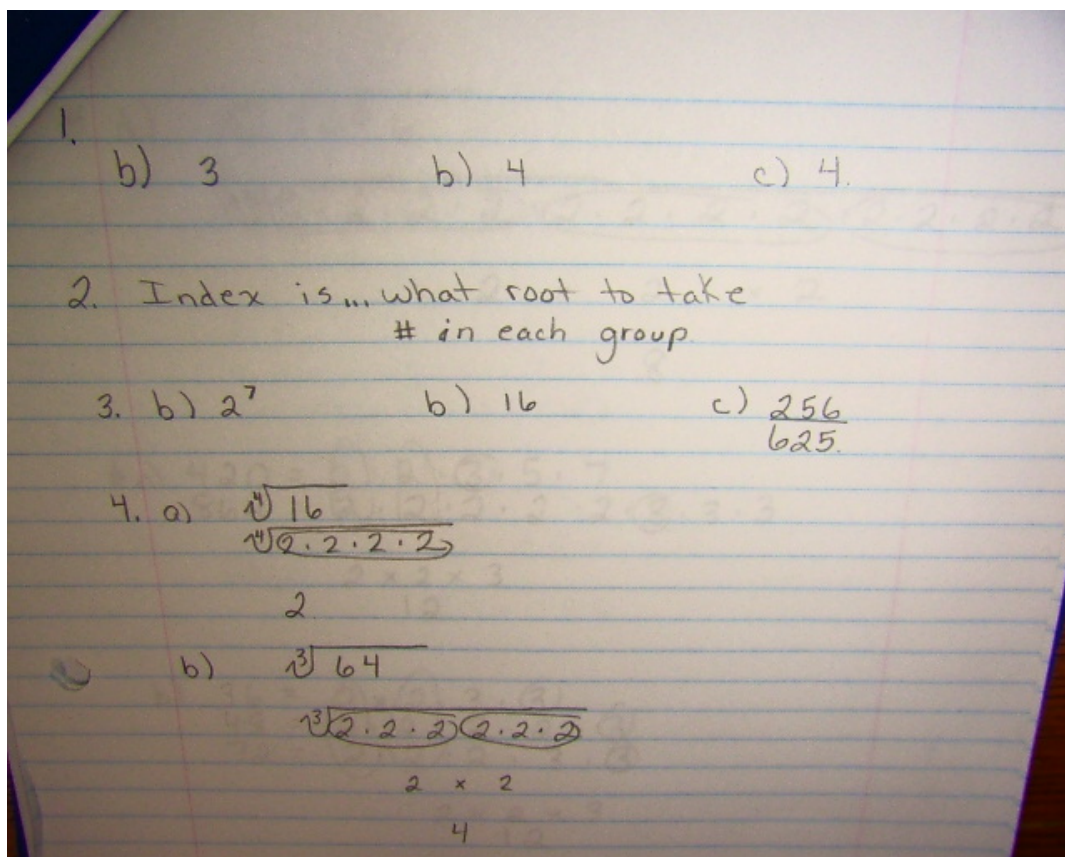 1.
b) 3 b) 4 c) 4.
2. Index is... what root to take
# in each group
3. b) 2⁷ b) 16 c) 256/625.
4. a) ∜16
∜2·2·2·2
2
b) ∛64
∛2·2·2 2·2·2
2 × 2
4